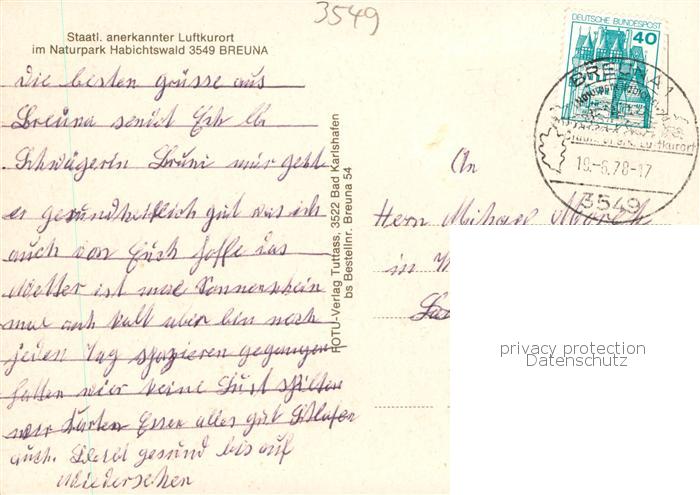 3549
Staatl. anerkannter Luftkurort
im Naturpark Habichtswald 3549 BREUNA
Die besten Grüsse aus
Breuna sendet Euch Eb
Schwägerin Bruni mir geht
es gesundheitlich gut was ich
auch von Euch hoffe das
Wetter ist mal Sonnenschein
mal auch kalt aber bin noch
jeden Tag spazieren gegangen
hatten wier keine Lust spilten
wier Karten Essen alles gut Schlafen
auch. Bleibt gesund bis auf
Wiedersehen
FOTU-Verlag Tuttass, 3522 Bad Karlshafen
bs Bestellnr. Breuna 54
DEUTSCHE BUNDESPOST
40
BREUNA 1
Luftkurort
19.-6.78-17
3549
An
Hern Michael
in
privacy protection
Datenschutz